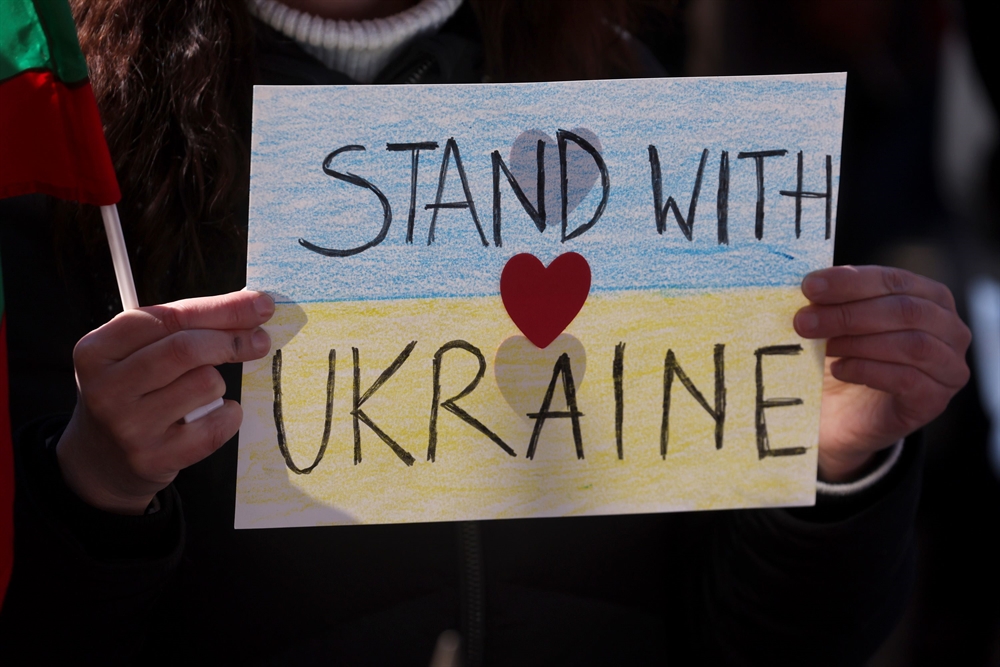 STAND WITH
UKRAINE